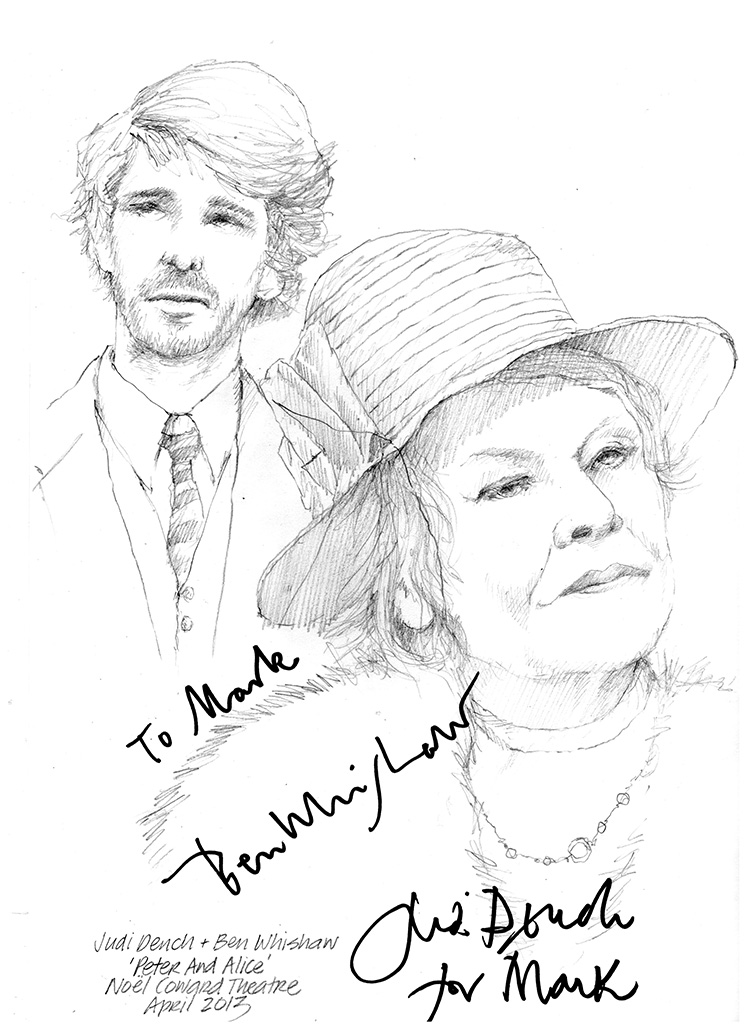 To Mark
Ben Whishaw
Judi Dench
for Mark
Judi Dench + Ben Whishaw
'Peter And Alice'
Noël Coward Theatre
April 2013